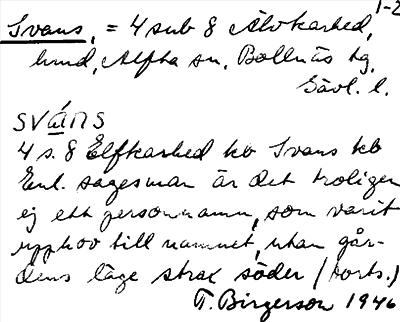 1-2
Svans, = 4 sub 8 Älvkarhed,
hmd, Alfta sn, Bollnäs tg,
Gävl. l.
SVÁNS
4 s. 8 Elfkarhed kb Svans kb
Enl. sagesman är det troligen
ej ett personnamn, som varit
upphov till namnet, utan går-
dens läge strax söder / (forts.)
T. Birgerson 1946